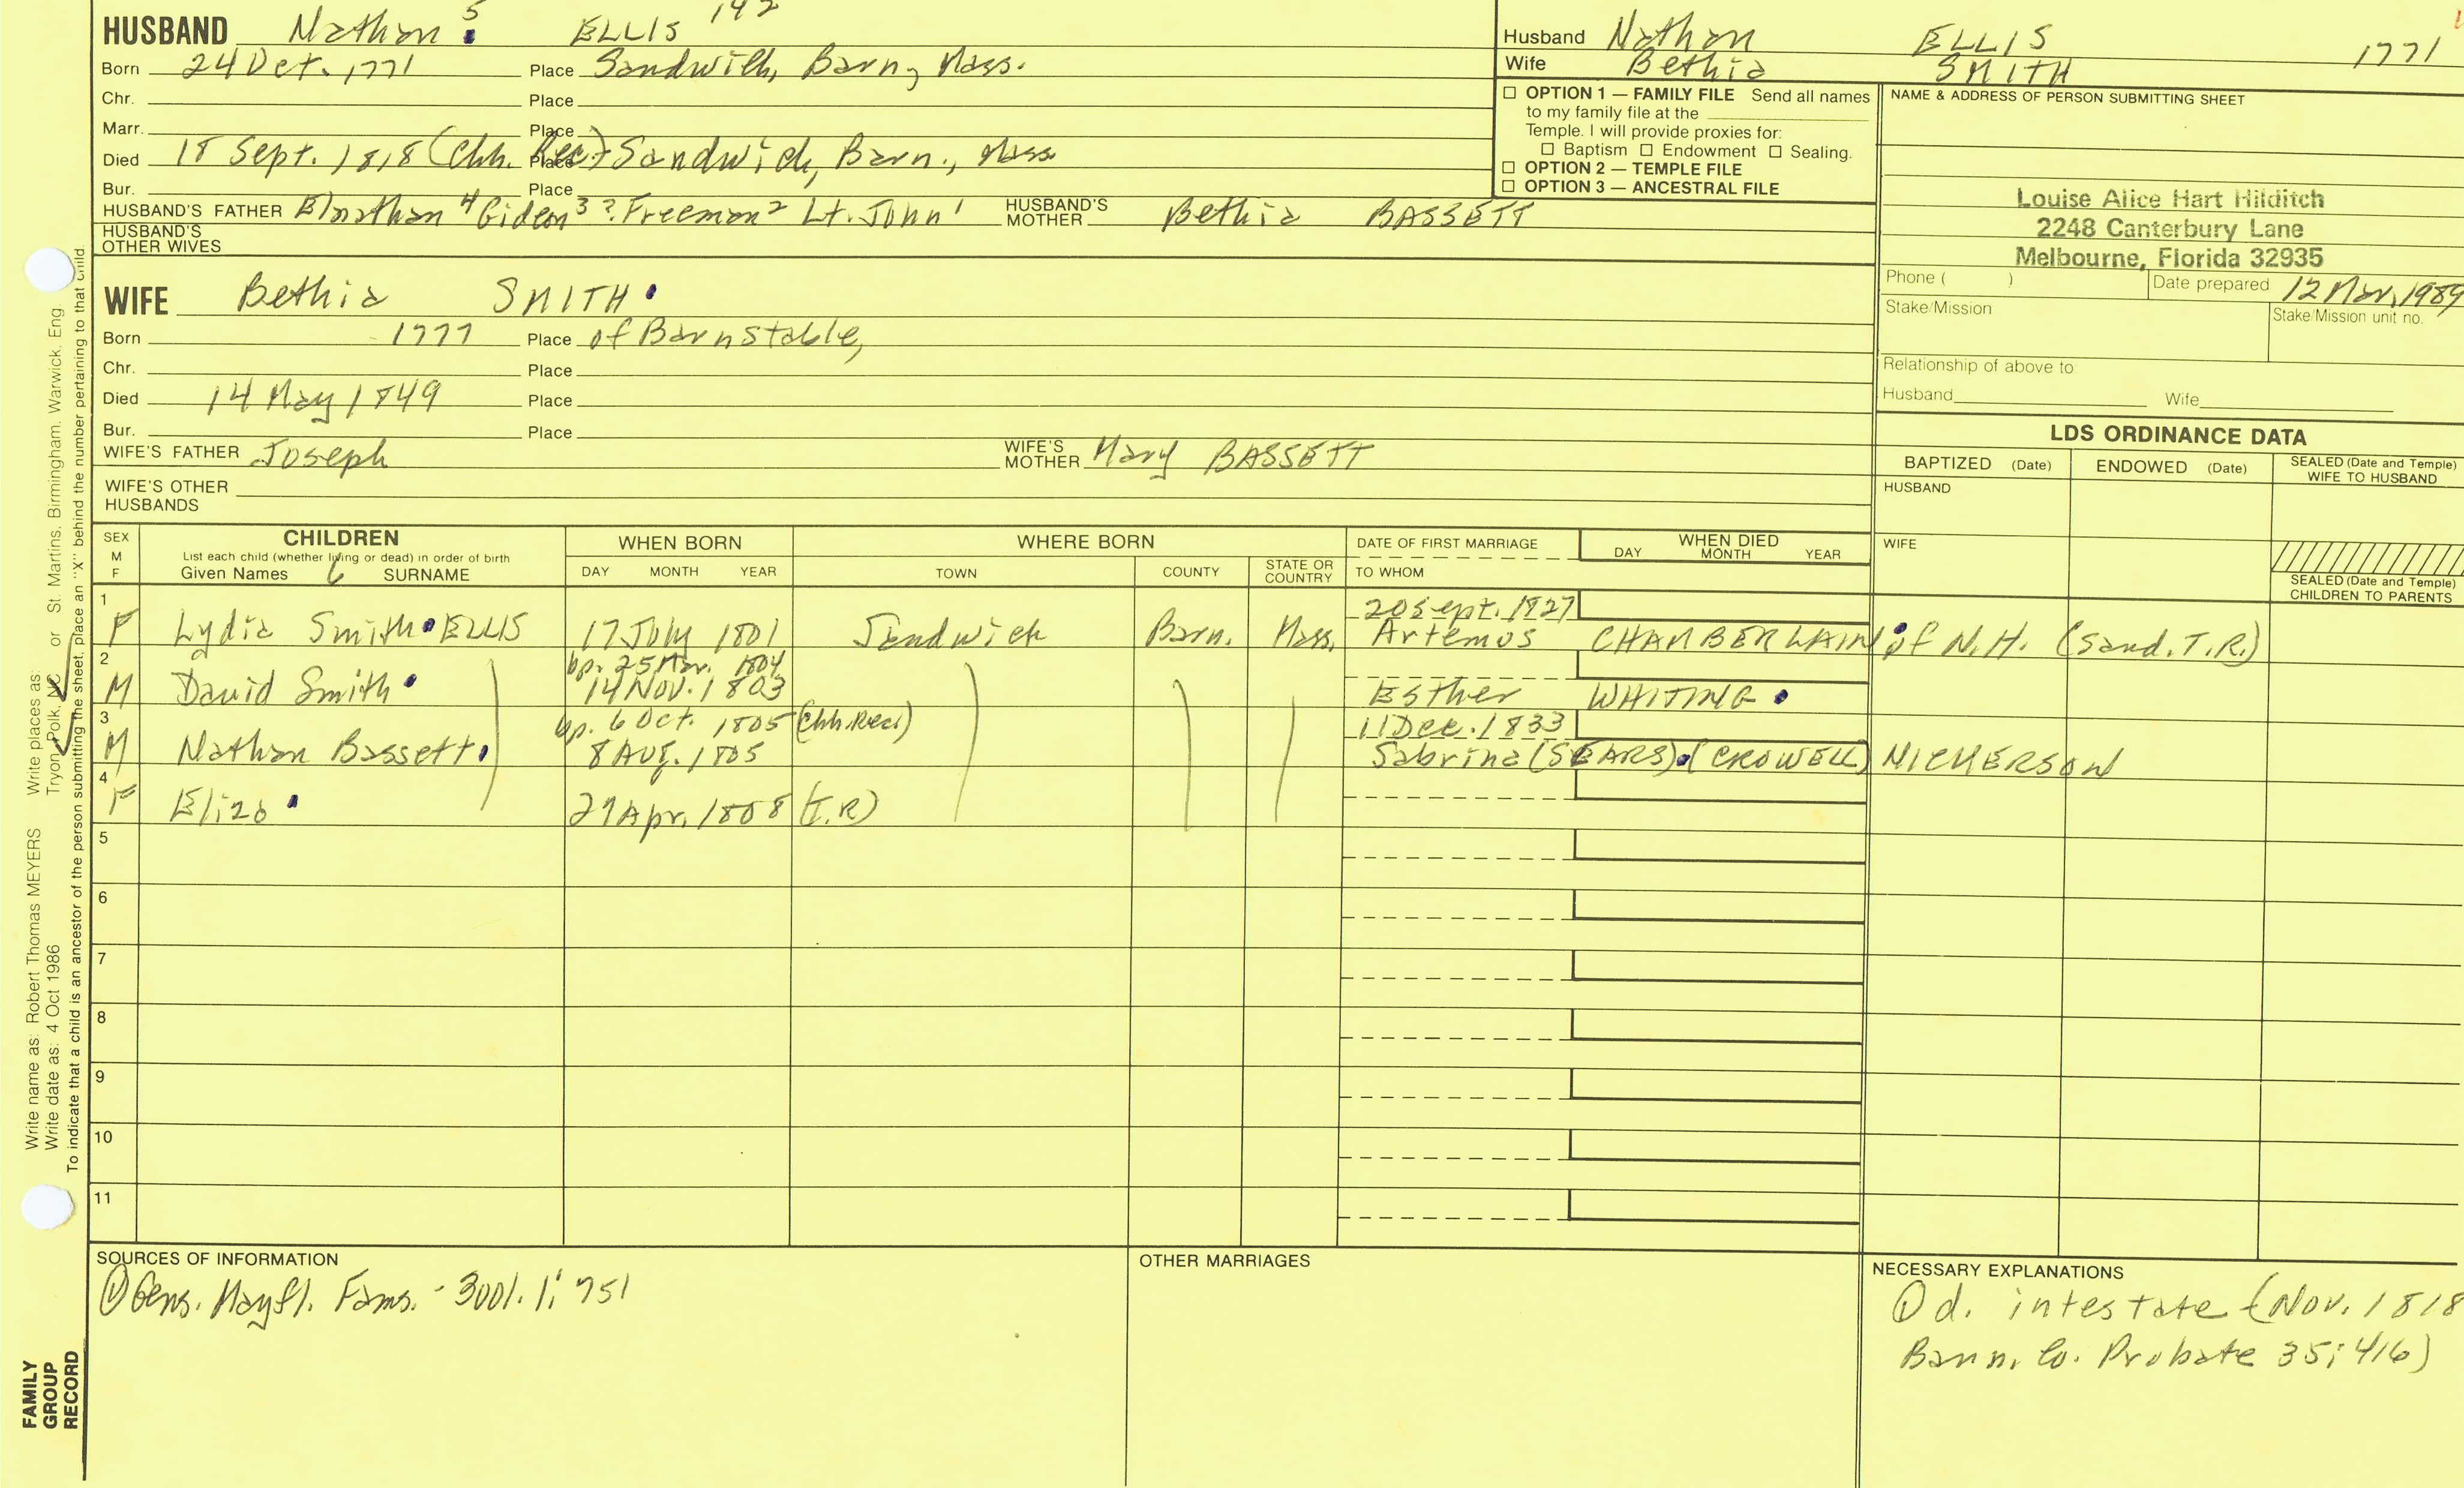 HUSBAND Nathan 5 ELLIS 142
Born 24 Oct. 1771 Place Sandwich, Barn, Mass.
Chr. Place
Marr. Place
Died 18 Sept. 1818 (Chh. Rec) Place Sandwich, Barn., Mass
Bur. Place
HUSBAND'S FATHER Elnathan 4 Gideon 3 ? Freeman 2 Lt. John 1 HUSBAND'S MOTHER Bethia BASSETT
HUSBAND'S OTHER WIVES
WIFE Bethia SMITH
Born 1777 Place of Barnstable,
Chr. Place
Died 14 May 1849 Place
Bur. Place
WIFE'S FATHER Joseph WIFE'S MOTHER Mary BASSETT
WIFE'S OTHER HUSBANDS
Husband Nathan ELLIS 1771
Wife Bethia SMITH
☐ OPTION 1 — FAMILY FILE Send all names
to my family file at the
Temple. I will provide proxies for:
☐ Baptism ☐ Endowment ☐ Sealing.
☐ OPTION 2 — TEMPLE FILE
☐ OPTION 3 — ANCESTRAL FILE
NAME & ADDRESS OF PERSON SUBMITTING SHEET
Louise Alice Hart Hilditch
2248 Canterbury Lane
Melbourne, Florida 32935
Phone ( ) Date prepared 12 Mar, 1989
Stake/Mission Stake/Mission unit no.
Relationship of above to
Husband Wife
LDS ORDINANCE DATA
BAPTIZED (Date) ENDOWED (Date) SEALED (Date and Temple) WIFE TO HUSBAND
HUSBAND
WIFE
SEALED (Date and Temple) CHILDREN TO PARENTS
SEX M F CHILDREN WHEN BORN WHERE BORN DATE OF FIRST MARRIAGE WHEN DIED
List each child (whether living or dead) in order of birth
Given Names SURNAME DAY MONTH YEAR TOWN COUNTY STATE OR COUNTRY TO WHOM DAY MONTH YEAR
1 20 Sept. 1827
F Lydia Smith ELLIS 17 July 1801 Sandwich Barn. Mass. Artemus CHAMBERLAIN of N.H. (Sand. T.R.)
2 bp. 25 Mar. 1804
M David Smith 14 Nov. 1803 Esther WHITING
3 bp. 6 Oct. 1805 (Chh. Rec) 11 Dec. 1833
M Nathan Bassett 8 Aug. 1805 Sabrina (SEARS) (CROWELL) NICKERSON
4
F Eliza 29 Apr. 1808 (T.R)
5
6
7
8
9
10
11
SOURCES OF INFORMATION
① Gens. Mayfl. Fams. - 3001. 1: 751
OTHER MARRIAGES
NECESSARY EXPLANATIONS
① d. intestate (Nov. 1818
Barn. Co. Probate 35: 416)
Write name as: Robert Thomas MEYERS Write places as:
Write date as: 4 Oct 1986 Tryon, Polk, NC or St. Martins, Birmingham, Warwick, Eng
To indicate that a child is an ancestor of the person submitting the sheet, place an "X" behind the number pertaining to that child
FAMILY
GROUP
RECORD